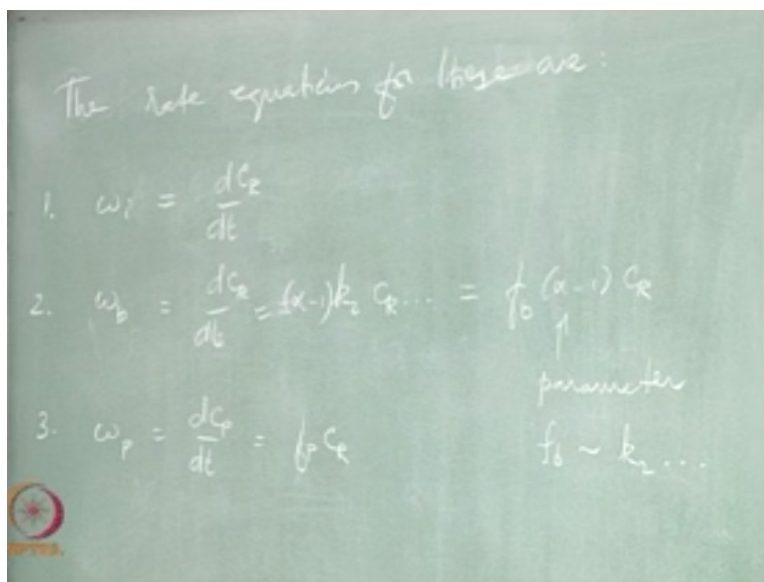 The rate equations for these are:
1. ωi = dCR/dt
2. ωb = dCR/dt = (α-1)k2 CR... = fb (α-1) CR
↑
parameter
3. ωp = dCP/dt = fp CR
fb ~ k2 ...
NPTEL